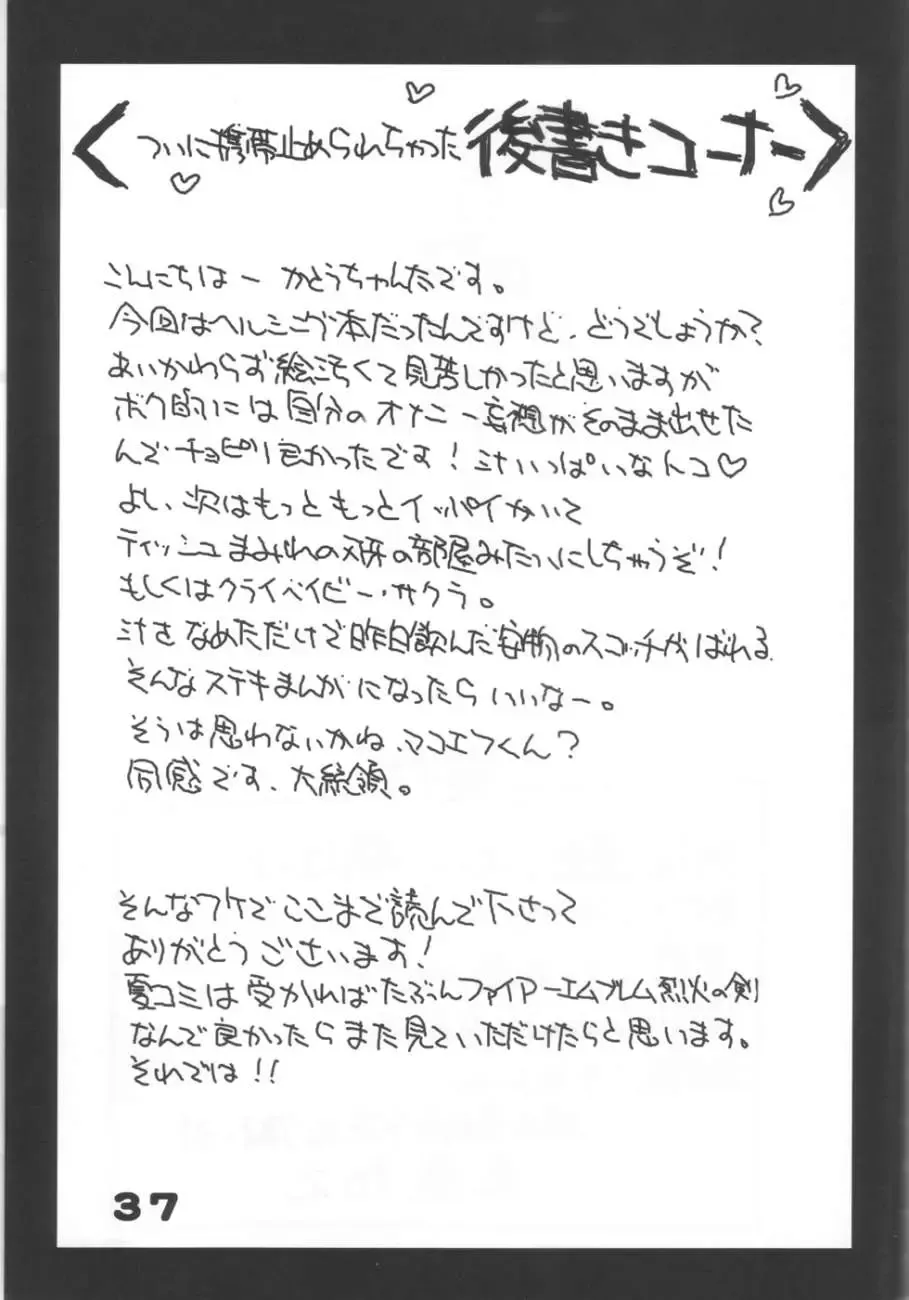 ついに携帯止められちゃった後書きコーナー
こんにちはー かとうちゃんたです。
今回はヘルシング本だったんですけど、どうでしょうか?
あいかわらず絵汚くて見苦しかったと思いますが
ボク的には自分のオナニー妄想がそのまま出せた
んで・チョピリ良かったです!汁いっぱいなんコ♡
よし、次はもっともっとイッパイかいて
ティッシュまみれの の部屋みたいにしちゃうぞ!
もしくはクライベイビー・サクラ。
汁をなめただけで昨日飲んだ安物のスコッチがばれる
そんなステキまんがになったらいいなー。
そうは思わないかね、マコエフくん?
同感です、大統領。
そんなワケでここまで読んで下さって
ありがとうございます!
夏コミは受かればたぶんファイアーエムブレム烈火の剣
なんで良かったらまた見ていただけたらと思います。
それでは!!
37